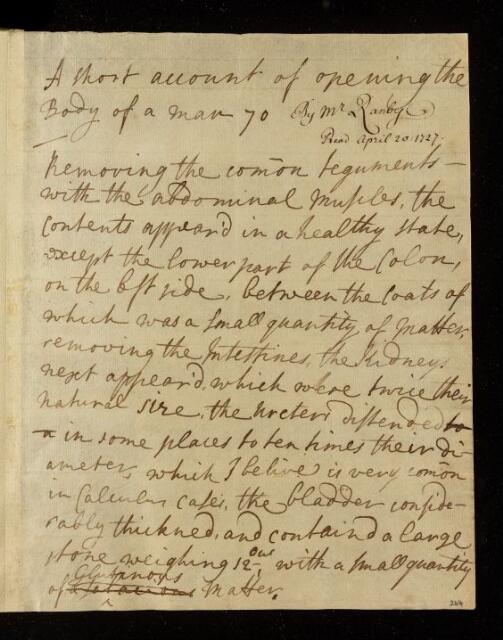 A short account of opening the
Body of a man 70 By Mr. Ranby.
Read April 20. 1727.
Removing the comōn teguments
with the abdominal Muscles, the
Contents appear'd in a healthy state,
except the lower part of the Colon,
on the left side, between the Coats of
which was a small quantity of matter,
removing the Intestines, the Kidneys
next appear'd, which were twice their
natural size, the Ureters distended to
a in some places to ten times their di-
ameter, which I belive is very comōn
in Calculus cases, the bladder conside-
rably thickned, and contain'd a large
stone weighing 12 oun, with a small quantity
Glutinous
of matter.